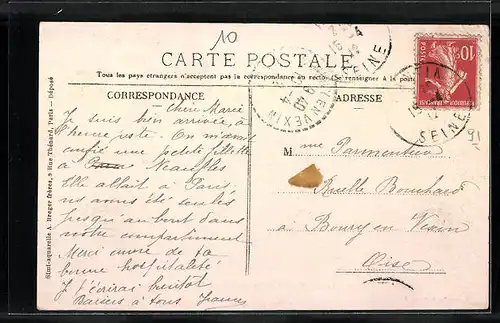 10
CARTE POSTALE
Tous les pays étrangers n'acceptent pas la correspondance au recto. (Se renseigner à la poste
CORRESPONDANCE
ADRESSE
Chère Marie
Je suis bien arrivée, à
l'heure juste. On m'avait
confié une petite fillette
à Neaufles
Elle allait à Paris,
nous avons été seules
presqu'au bout dans
notre compartiment
Merci encore de ta
bonne hospitalité
Je t'écrirai bientôt
Baisers à tous
Mme Parmentier
Ruelle Bouchard
à Boury en Vexin
Oise
Simi-aquarelle A. Breger frères, 9 Rue Thénard, Paris — Déposé
POSTES
10c
SEINE
SEINE